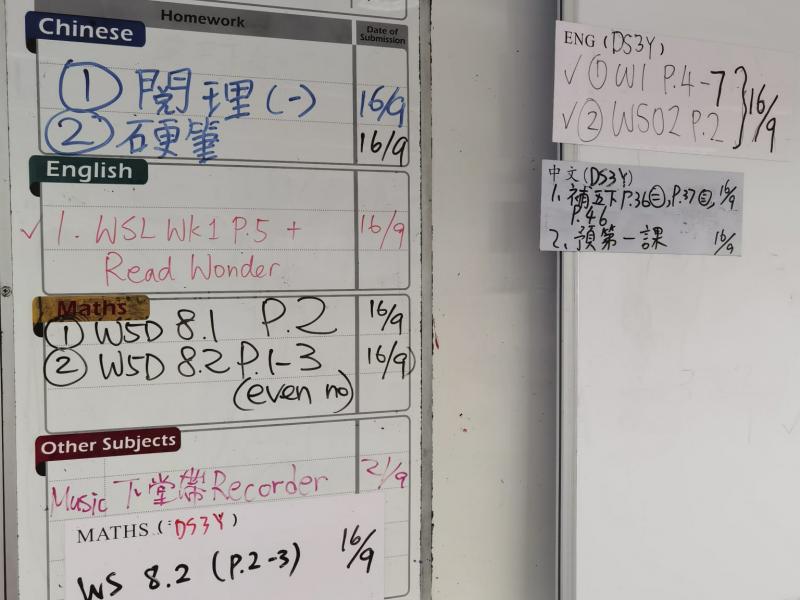 Homework
Date of Submission
Chinese
① 閱理(一) 16/9
② 硬筆 16/9
English
✓ 1. WSL Wk1 P.5 + 16/9
Read Wonder
Maths
① WSD 8.1 P.2 16/9
② WSD 8.2 P.1-3 16/9
(even no)
Other Subjects
Music 下堂帶Recorder 21/9
MATHS (DS3Y)
WS 8.2 (P.2-3) 16/9
ENG (DS3Y)
✓ ① W1 P.4-7
✓ ② WS02 P.2
16/9
中文(DS3Y)
1. 補五下P.36㊁,P.37㊂, 16/9
P.46
2. 預第一課 16/9